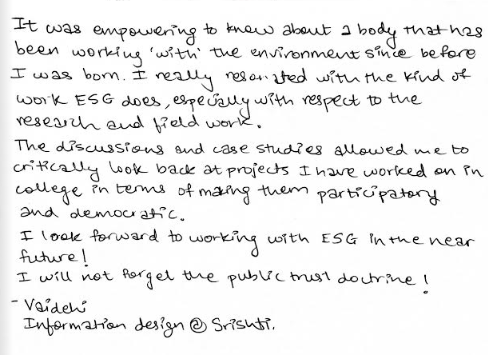 It was empowering to know about a body that has
been working 'with' the environment since before
I was born. I really resonated with the kind of
work ESG does, especially with respect to the
research and field work.
The discussions and case studies allowed me to
critically look back at projects I have worked on in
college in terms of making them participatory
and democratic.
I look forward to working with ESG in the near
future!
I will not forget the public trust doctrine!
- Vaidehi
Information design @ Srishti.